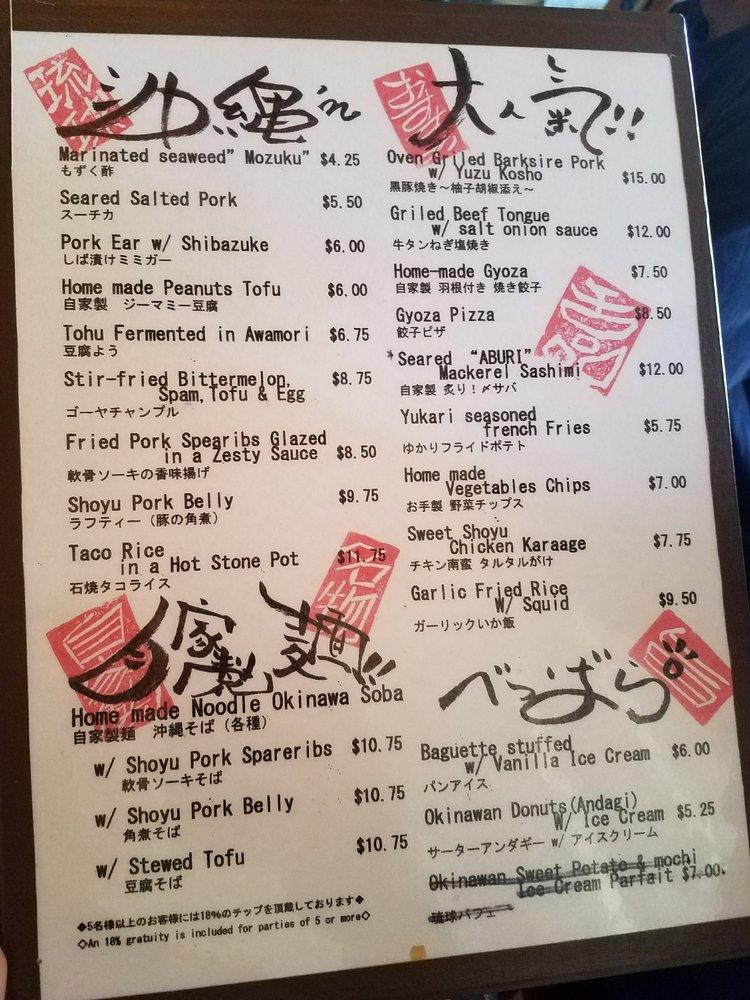 琉球
沖縄in
Marinated seaweed” Mozuku” $4.25
もずく酢
Seared Salted Pork $5.50
スーチカ
Pork Ear w/ Shibazuke $6.00
しば漬けミミガー
Home made Peanuts Tofu $6.00
自家製 ジーマミー豆腐
Tohu Fermented in Awamori $6.75
豆腐よう
Stir-fried Bittermelon,
Spam,Tofu & Egg $8.75
ゴーヤチャンプル
Fried Pork Spearibs Glazed
in a Zesty Sauce $8.50
軟骨ソーキの香味揚げ
Shoyu Pork Belly $9.75
ラフティー（豚の角煮）
Taco Rice
in a Hot Stone Pot $11.75
石焼タコライス
名物
自家製麺!!
Home made Noodle Okinawa Soba
自家製麺 沖縄そば（各種）
w/ Shoyu Pork Spareribs $10.75
軟骨ソーキそば
w/ Shoyu Pork Belly $10.75
角煮そば
w/ Stewed Tofu $10.75
豆腐そば
◆5名様以上のお客様には18%のチップを頂戴しております◆
◇An 18% gratuity is included for parties of 5 or more◇
大人氣!!
Oven Griled Barksire Pork
w/ Yuzu Kosho $15.00
黒豚焼き～柚子胡椒添え～
Griled Beef Tongue
w/ salt onion sauce $12.00
牛タンねぎ塩焼き
Home-made Gyoza $7.50
自家製 羽根付き 焼き餃子
Gyoza Pizza $8.50
餃子ピザ
*Seared “ABURI”
Mackerel Sashimi $12.00
自家製 炙り！〆サバ
Yukari seasoned
french Fries $5.75
ゆかりフライドポテト
Home made
Vegetables Chips $7.00
お手製 野菜チップス
Sweet Shoyu
Chicken Karaage $7.75
チキン南蛮 タルタルがけ
Garlic Fried Rice
W/ Squid $9.50
ガーリックいか飯
べつばら
Baguette stuffed
w/ Vanilla Ice Cream $6.00
パンアイス
Okinawan Donuts(Andagi)
W/ Ice Cream $5.25
サーターアンダギー w/ アイスクリーム
Okinawan Sweet Potate & mochi
Ice Cream Parfait $7.00.
琉球パフェ